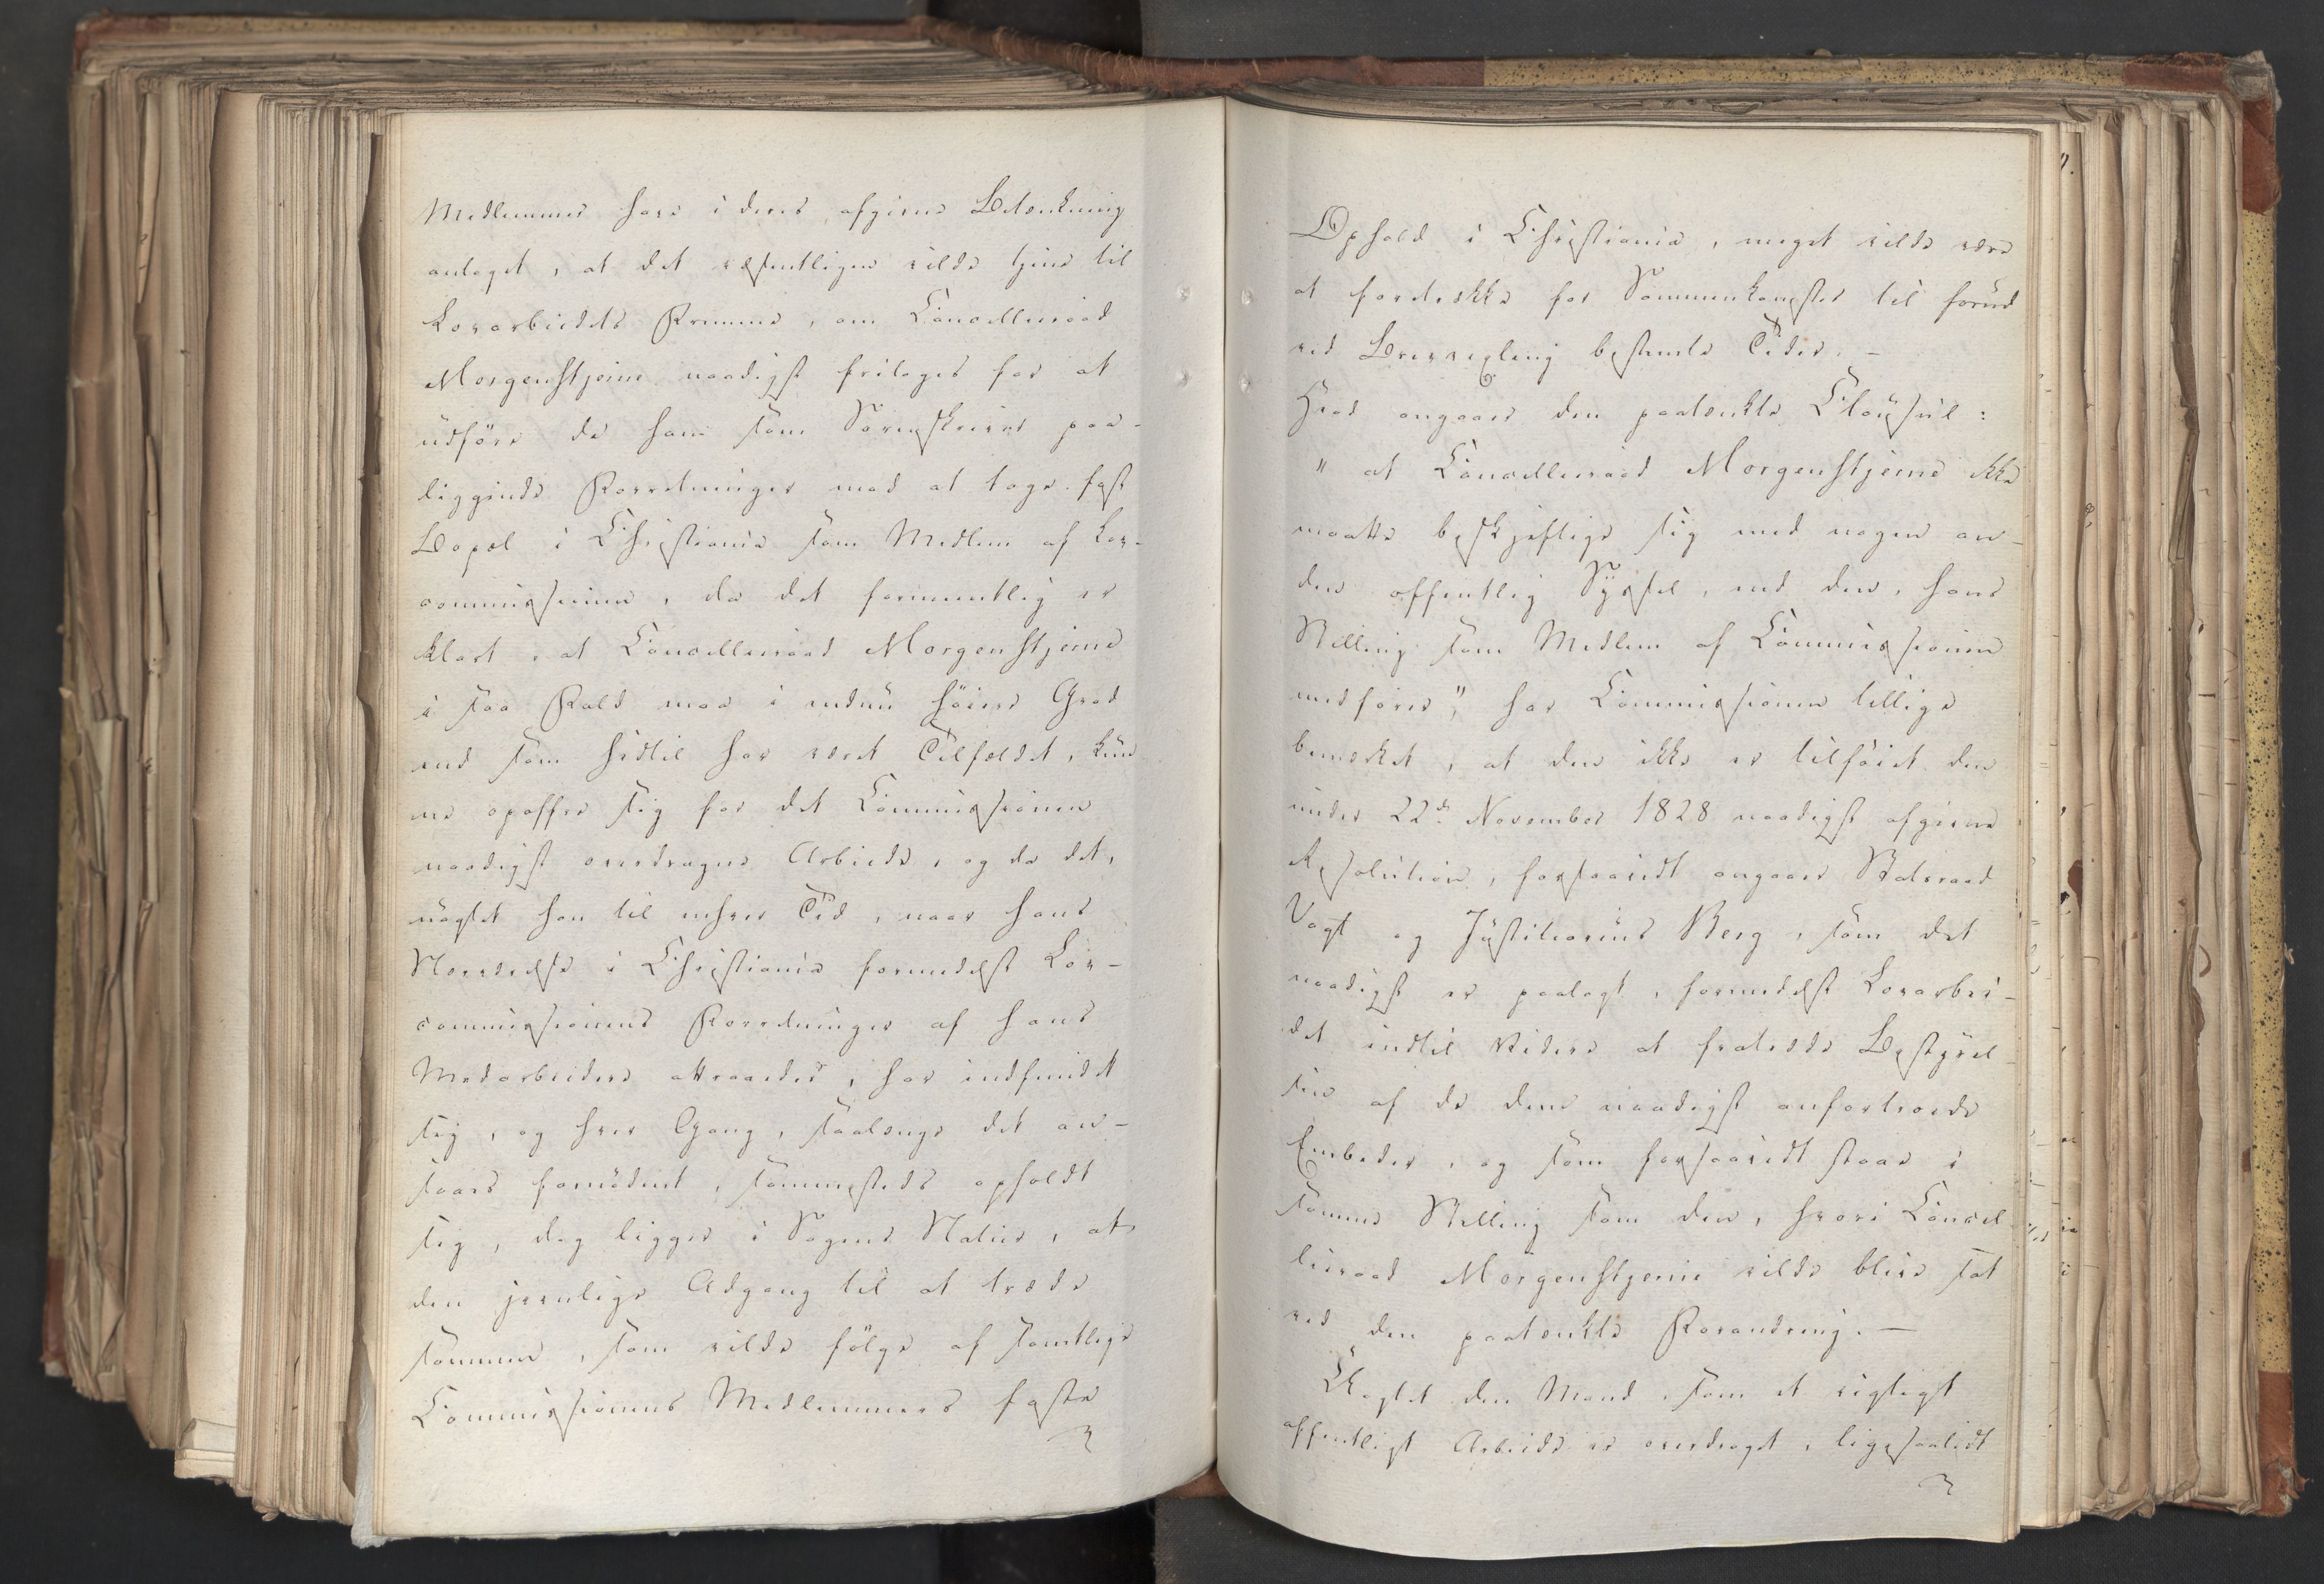 Medlemmer have i deres afgivne Betænkning
antaget, at det væsentligen vilde tjene til
Lovarbeidets Fremme, om Cancelleraad
Morgenstjerne naadigst fritages for at
udføre de ham som Sorenskriver paa-
liggende Forretninger mod at tage fast
Bopæl i Christiania som Medlem af Lov-
commissionen, da det formeentlig er
klart, at Cancelleraad Morgenstjerne
i saa Fald maa i endnu høiere Grad
end som hidtil har været Tilfældet, kun-
ne opoffre sig for det Commissionen
naadigst overdragne Arbeide, og da det,
uagtet han til enhver Tid, naar hans
Nærværelse i Christiania formedelst Lov-
commissionens Forretninger af hans
Medarbeidere attraaedes, har indfundet
sig, og hver Gang, saalænge det an-
saaes fornødent, sammesteds opholdt
sig, dog ligger i Sagens Natur, at
den jevnlige Adgang til at træde
sammen, som vilde følge af samtlige
Commissionens Medlemmers faste
Ophold i Christiania, meget vilde være
at foretrække for Sammenkomster til forud
ved Brevvexling bestemte Tider. –
Hvad angaaer den paatænkte Clausul:
" at Cancelleraad Morgenstjerne ikke
maatte beskjeftige sig med nogen an-
den offentlig Syssel, end den, hans
Stilling som Medlem af Commissionen
medfører", har Commissionen tillige
bemærket, at den ikke er tilføiet den
under 22de November 1828 naadigst afgivne
Resolution, forsaavidt angaaer Statsraad
Vogt og Justitiarius Berg, som det
naadigst er paalagt, formedelst Lovarbei-
det indtil Videre at fratræde Bestyrel-
sen af de dem naadigst anfortroede
Embeder, og som forsaavidt staae i
samme Stilling som den, hvori Cancel-
leraad Morgenstjerne vilde blive sat
ved den paatænkte Forandring. –
Uagtet den Mand, som et vigtigt
offentligt Arbeide er overdraget, ligesaalidt